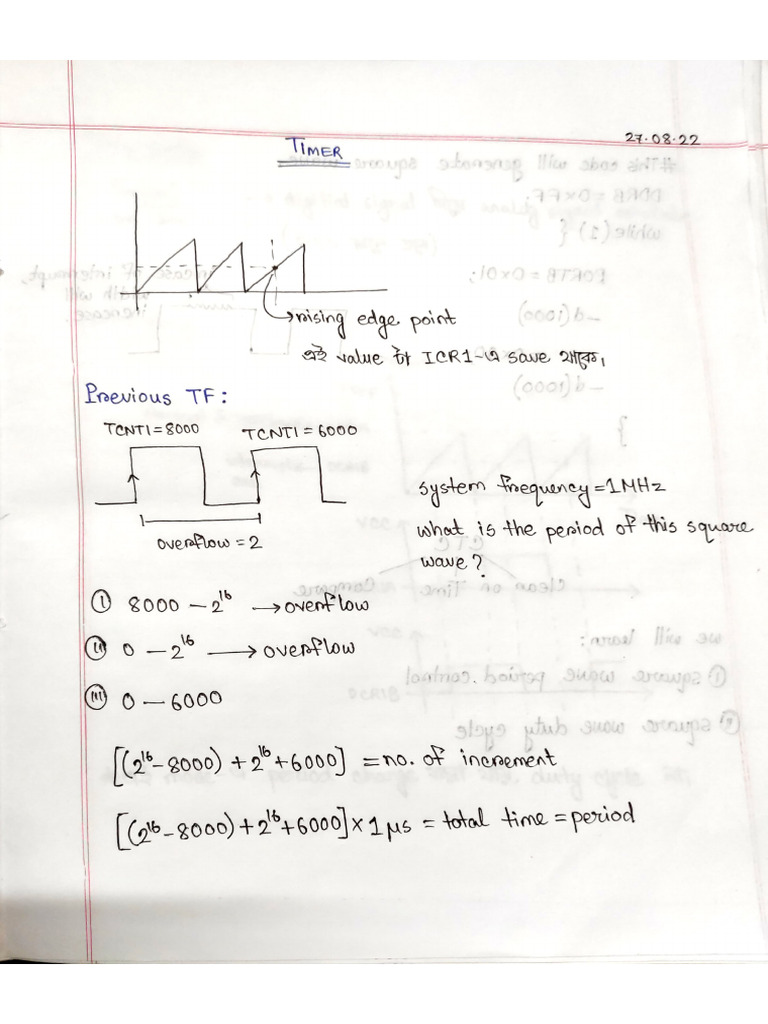 27.08.22
TIMER
rising edge point
এই value টা ICR1-এ save থাকে।
Previous TF:
TCNT1=8000 TCNT1=6000
overflow=2
system frequency=1MHz
what is the period of this square
wave?
(i) 8000 – 2¹⁶ → overflow
(ii) 0 – 2¹⁶ → overflow
(iii) 0 – 6000
[(2¹⁶-8000) + 2¹⁶+6000] = no. of increment
[(2¹⁶-8000)+2¹⁶+6000]×1 μs = total time = period